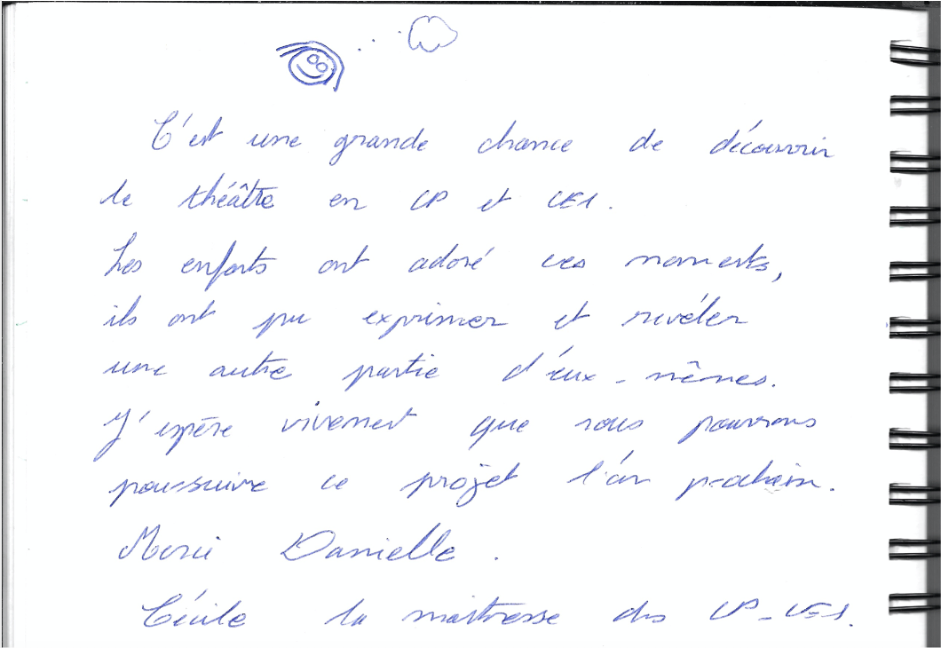 C'est une grande chance de découvrir
le théâtre en CP et CE1.
Les enfants ont adoré ces moments,
ils ont pu exprimer et révéler
une autre partie d'eux-mêmes.
J'espère vivement que nous pourrons
poursuivre ce projet l'an prochain.
Merci Danielle.
Cécile la maîtresse des CP-CE1.